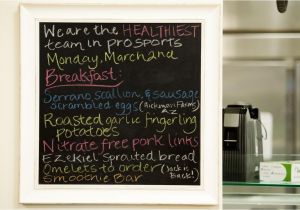 We are the HEALTHIEST
team in pro sports
Monday, March 2nd
Breakfast:
Serrano, scallion, & sausage
scrambled eggs (Hickman's Farms)
AZ
Roasted garlic fingerling
potatoes
Nitrate free pork links
Ezekiel sprouted bread
Omelets to order (Jack is
Back!)
Smoothie Bar